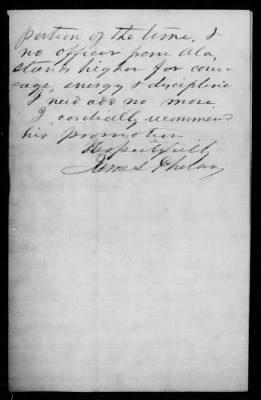 portion of the time, &
no officer from Ala,
stands higher for cour-
-age, energy & discipline
I need add no more.
I cordially recommend
his promotion
Respectfully
James Phelan